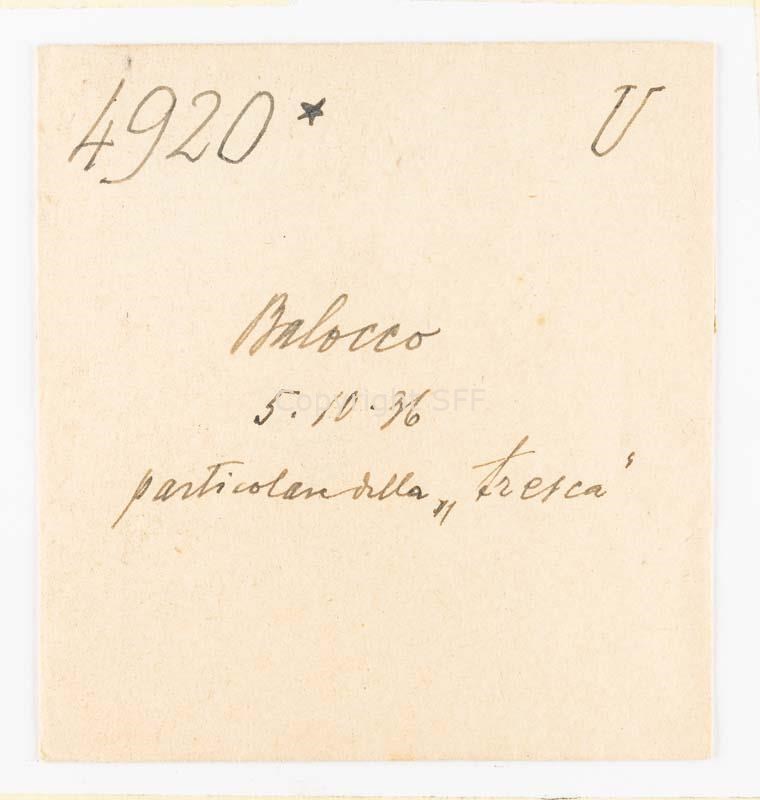 4920* U
Balocco
5.10.36
particolare della „tresca“
Copyright SFF